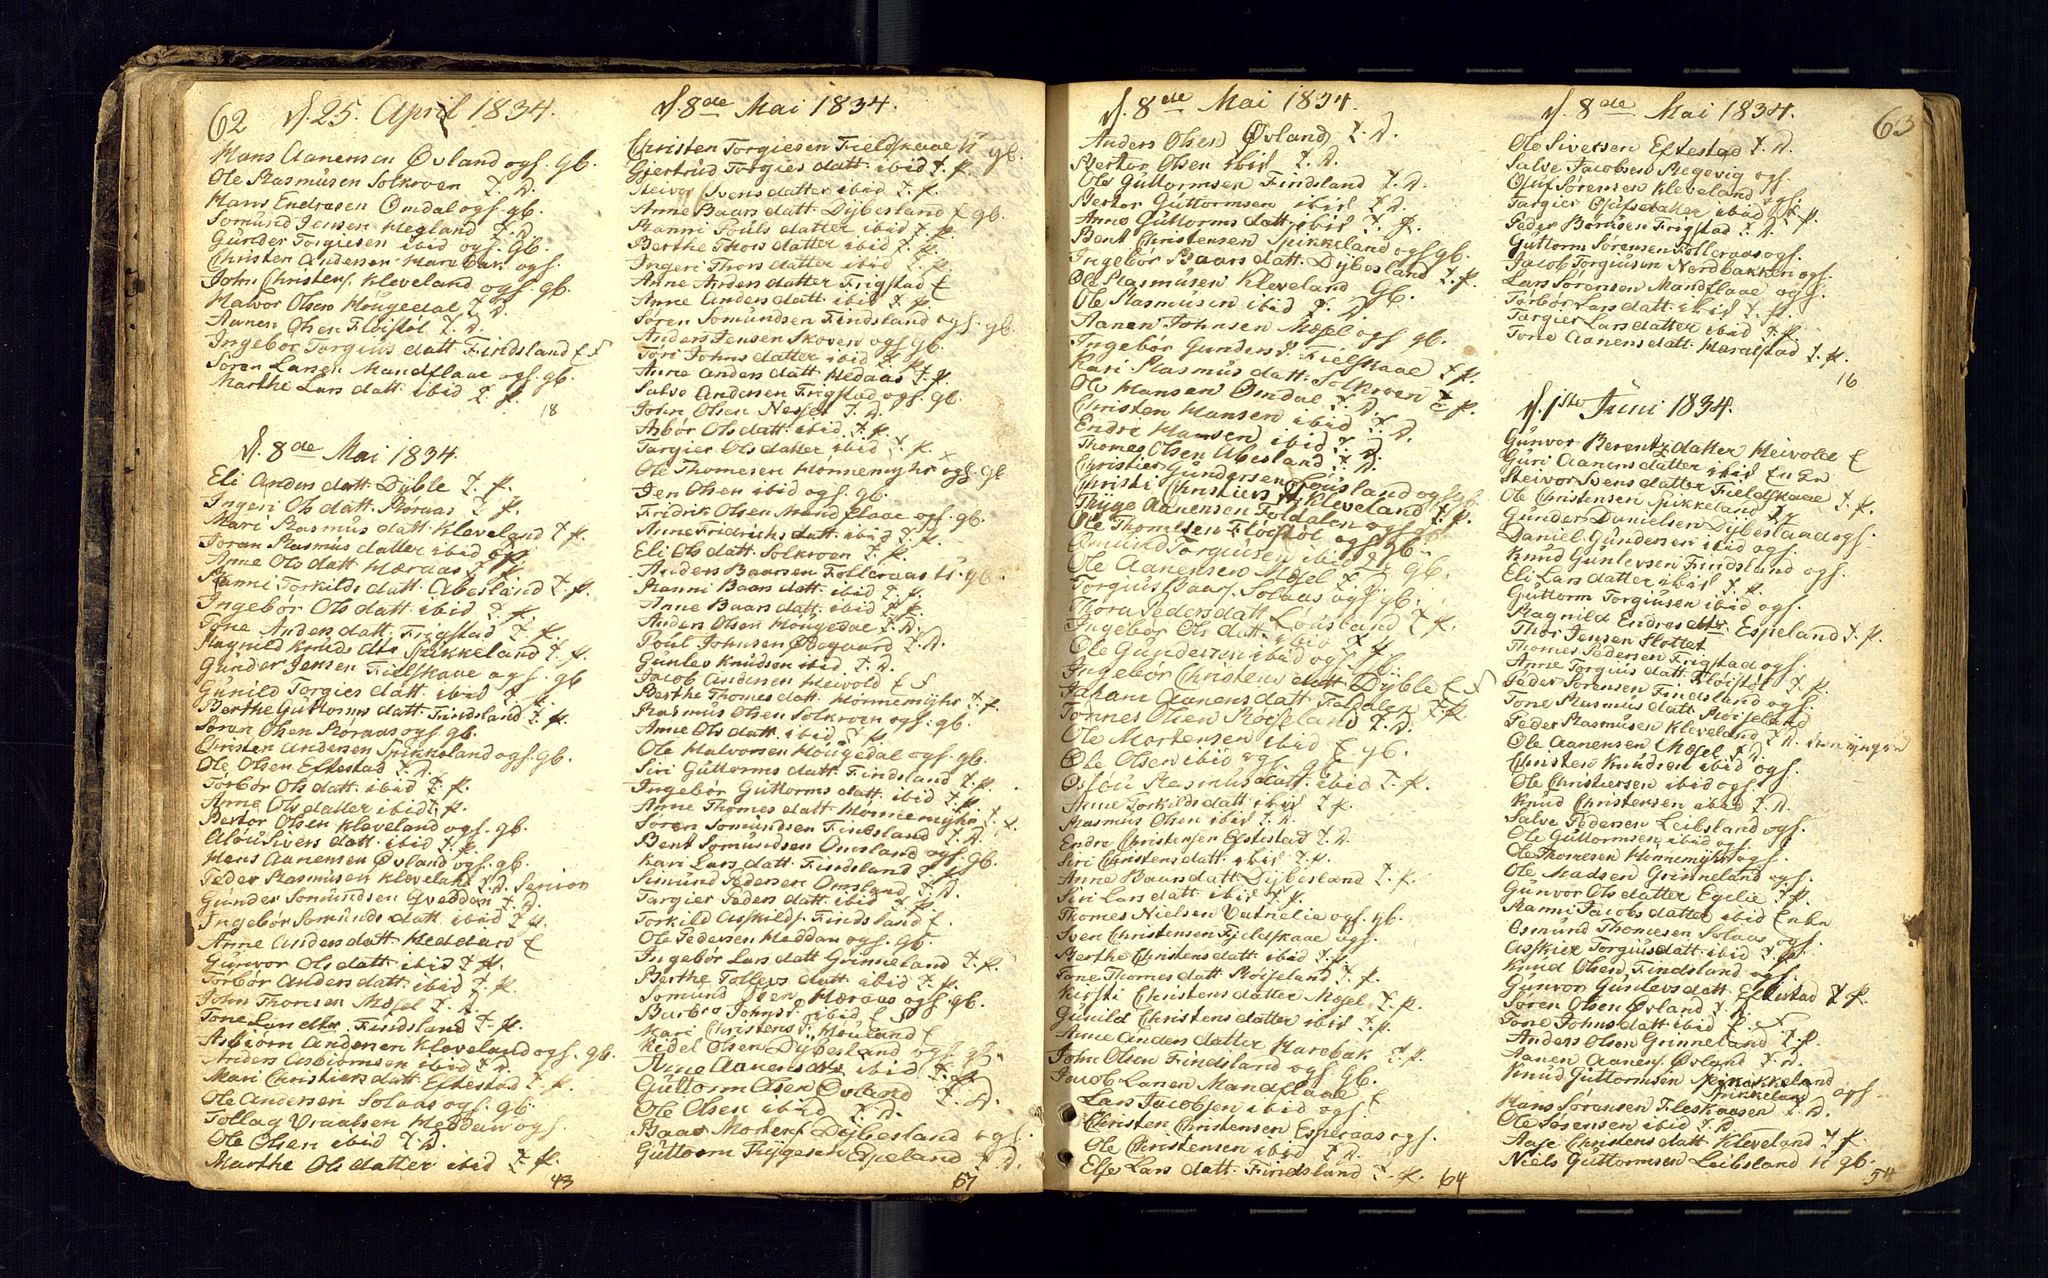 62 d. 25. April 1834.
Hans Aanensen Øvland ogf. gb.
Ole Rasmusen Solkroen T. D.
Hans Endresen Omdal ogf. gb.
Somund Jensen Hegland T. D.
Gunder Torgiesen ibid ogf. gb.
Christen Andersen Harebak ogf.
John Christens. Kleveland ogf. gb.
Halvor Olsen Hougedal T. D.
Aanen Olsen Fløistøl T. D.
Ingebor Torgius datt. Findsland E S
Søren Larsen Mandflaae ogf. gb.
Marthe Lars datt. ibid T. p.
18
d. 8de Mai 1834.
Eli Anders datt. Dyble T. p.
Ingeri Ols datt. Roraas T. p.
Mari Rasmus datt. Kleveland T. p.
Joran Rasmus datter ibid T. p.
Anne Ols datt. Hæraas T. p.
Ranni Torkilds datt. Abesland T. p.
Ingebor Ols datt. ibid T. p.
Tone Anders datt. Frigstad T. p.
Ragnild Knuds dtr Spikkeland T. p.
Gunder Jensen Fielskaae ogf. gb
Gunild Torgies datt. ibid T. p.
Berthe Guttorms datt. Findsland T. p.
Søren Olsen Roraas ogf. gb.
Christen Andersen Spikkeland ogf. gb.
Ole Olsen Eftestad T. D.
Torbor Ols datt. ibid T. p.
Anne Ols datter ibid T. p.
Bertor Olsen Kleveland ogf. gb.
Alou Sivers datt. ibid T. p.
Hans Aanensen Øvland ogf. gb.
Peder Rasmusen Kleveland T. D. Senior
Gunder Somundsen Qveddan T. D.
Ingebor Somunds datt. ibid T. p.
Anne Anders datt. Heddan E
Gunvor Ols datt. ibid T. p.
Torbor Anders datt. ibid T. p.
John Thorsen Mosel T. D.
Tone Lars dtr. Findsland T. p.
Asbiorn Andersen Kleveland ogf. gb.
Anders Asbiornsen ibid T. D.
Mari Christiers datt. Eftestad T. p.
Ole Andersen Solaas ogf. gb.
Tollag Vraalsen Heddan ogf.
Ole Olsen ibid T. D.
Marthe Ols datter ibid T. p.
43
d. 8de Mai 1834.
Christen Torgiesen Fielskaae H gb.
Giertrud Torgies datt. ibid T. p.
Steivor Svens datter ibid T. p.
Anne Baars datt. Dybesland E gb.
Ranni Pouls datter ibid T. p.
Berthe Thors datter ibid T. p.
Ingeri Thors datter ibid T. p.
Anne Anders datter Frigstad E
Anne Anders datt. ibid T. p.
Søren Somundsen Findsland ogf. gb.
Anders Jensen Skoven ogf. gb.
Tori Johns datter ibid T. p.
Anne Anders datt. Hedaas T. p.
Salve Andersen Frigstad ogf. gb.
John Olsen Nesset T. D.
Asbor Ols datt. ibid T. p.
Targier Ols datter ibid T. p.
Ole Thomesen Honnemyhr ogf. gb
Jens Olsen ibid ogf. gb.
Fridrik Olsen Mandflaae ogf. gb.
Anne Fridrichs datt. ibid T. p.
Eli Ols datt. Solkroen T. p.
Anders Baarsen Folleraas H. gb.
Ranni Baars datt. ibid T. p.
Anne Baars datt. ibid T. p.
Anders Olsen Hougedal T. D.
Poul Johnsen Ødegaard T. D.
Gunlev Knudsen ibid T. D.
Jacob Andersen Heivold E S
Berthe Thomes datt. Honnemyhr T. p
Rasmus Olsen Solkroen ogf. gb.
Anne Ols datt. ibid T. p.
Ole Halvorsen Hougedal ogf. gb.
Siri Guttorms datt. Findsland T. p.
Ingebor Guttorms datt. ibid T. p.
Anne Thomes datt. Honnemyhr T. p.
Søren Somundsen Findsland T. D.
Bent Somundsen Omsland ogf. gb.
Kari Lars datt. Findsland T. p.
Simund Pedersen Omsland T. D.
Targier Peders datt. ibid T. p.
Torkild Askilds. Findsland E
Ole Pedersen Heddan ogf. gb.
Ingebor Lars datt. Grinneland T. p.
Berthe Tollevs datt. ibid T. p.
Somund Osen Hæraas ogf. gb.
Barbro Johns d. ibid E S
Kari Christens d. Houland E
Kedel Olsen Dybesland ogf. gb.
Anne Aanens dtr ibid T. p.
Guttorm Olsen Øvland T. D.
Ole Olsen ibid T. D.
Baar Mortens. Dybesland ogf.
Guttorm Thygesen Espeland T. D.
67
d. 8de Mai 1834.
Anders Olsen Øvland T. D.
Bertor Olsen ibid T. D.
Ole Guttormsen Findsland T. D.
Bertor Guttormsen ibid T. D.
Anne Guttorms datt. ibid T. p.
Bent Christensen Spikkeland ogf. gb.
Ingebor Baars datt. Dybesland T. p.
Ole Rasmusen Kleveland gb.
Ole Rasmusen ibid T. D.
Aanen Johnsen Mosel ogf. gb.
Ingebor Gunders d. Fielskaae T. p.
Kari Rasmus datt. Solkroen T. p.
Ole Hansen Omdal T. D.
Christen Hansen ibid T. D.
Endre Hansen ibid T. D.
Thomes Olsen Abesland T. D.
Christier Gundersen Lousland ogf. gb
Christi Christiers d. Kleveland T. p.
Thyge Aanensen Foldalen ogf. gb.
Ole Thomesen Fløistøl ogf. gb
Omund Torgiusen ibid T. gb.
Ole Aanensen Mosel T. gb.
Torgius Baars. Solaas ogf. gb.
Thora Peders datt. Lousland T. p.
Ingebor Ols datt. ibid T. p.
Ole Gundersen ibid ogf. gb.
Ingebor Christens datt. Dyble E S
Johane Aanens datt. Foldalen T. p.
Tønnes Olsen Roiseland T. D.
Ole Mortensen ibid E gb.
Ole Olsen ibid ogf. gb
Osfou Rasmus datt. ibid T. p.
Anne Torkilds datt. ibid T. p.
Rasmus Olsen ibid T. D.
Endre Christensen Eftestad T. D.
Siri Christens datt. ibid T. p.
Anne Baars datt. Dybesland T. p.
Siri Lars datt. ibid T. p.
Thomes Nielsen Vatnelie ogf. gb.
Sven Christensen Fjeldskaae ogf.
Berthe Christens datt. ibid T. p.
Tone Thomes datt. Roiseland T. p.
Kirsti Christens datter Mosel T. p.
Gunild Christens datter ibid T. p.
Anne Anders datter Harebak T. p.
John Olsen Findsland ogf. gb.
Jacob Larsen Mandflaae E
Lars Jacobsen ibid ogf.
Christen Christensen Esperaas ogf.
Ole Christensen ibid T. D.
Else Lars datt. Findsland T. p.
64
d. 8de Mai 1834. 63
Ole Sivertsen Eftestad T. D.
Salve Jacobsen Regevig ogf.
Oluf Sørensen Kleveland ogf.
Targier Olufs datter ibid T. p.
Peder Børusen Frigstad T. D.
Guttorm Sørensen Folleraas ogf.
Jacob Torgiusen Nordbakken ogf.
Lars Sørensen Mandflaae ogf.
Torbor Lars datt. ibid T. p.
Targier Lars datter ibid T. p.
Tone Aanens datt. Haralstad T. p.
16
d. 1ste Juni 1834.
Gunvor Berentz datter Heivold E
Guri Aanens datter ibid
Steivor Svens datter Fieldskaae T. p.
Ole Christensen Spikkeland
Gunder Danielsen Dybesland ogf.
Daniel Gundersen ibid ogf.
Knud Gunlevsen Findsland ogf.
Eli Lars datter ibid T. p.
Guttorm Torgiusen ibid ogf.
Ragnild Endres dtr. Espeland T. p.
Thor Jensen Slottet
Thomes Pedersen Frigstad ogf.
Anne Torgius datt. Fløistøl T. p.
Peder Sørensen Findsland ogf.
Tone Rasmus datt. Roiseland
Peder Rasmusen Kleveland T. D. den yngre
Ole Aanensen Mosel T. D.
Christen Knudsen ibid ogf.
Ole Christiersen ibid ogf
Knud Christensen ibid T. D.
Salve Pedersen Leibsland ogf.
Ole Guttormsen ibid ogf
Ole Thomesen Honnemyhr ogf.
Ole Madsen Grinneland ogf.
Gunvor Ols datter Egelie T. p.
Ranni Jacobs datter ibid Enke
Osmund Thomesen Solaas ogf.
Asskier Torgius datt. ibid T. p.
Knud Olsen Findsland ogf.
Gunvor Gunlevs datt. Eftestad T. p.
Søren Olsen Øvland T. D.
Tone Johns datt. ibid E S
Anders Olsen Grinneland T. D.
Aanen Aanens. Øvland T. D.
Knud Guttormsen Spikkeland
Spikkeland ogf.
Hans Sørensen Fleskaasen T. D.
Ole Sørensen ibid T. D.
Aase Christens datt. Kleveland T. p.
Niels Guttormsen Leibsland H gb.
54